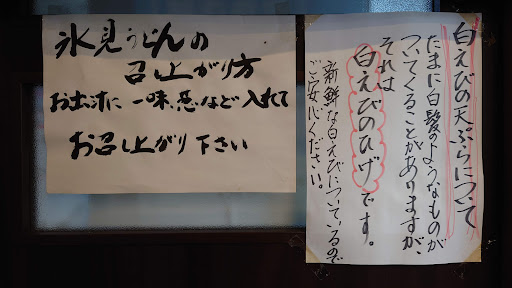 氷見うどんの
召し上がり方
お出汁に一味、葱など入れて
お召し上がり下さい
白えびの天ぷらについて
たまに白髪のようなものが
ついてくることがありますが、
それは
白えびのひげです。
新鮮な白えびについているので
ご安心ください。